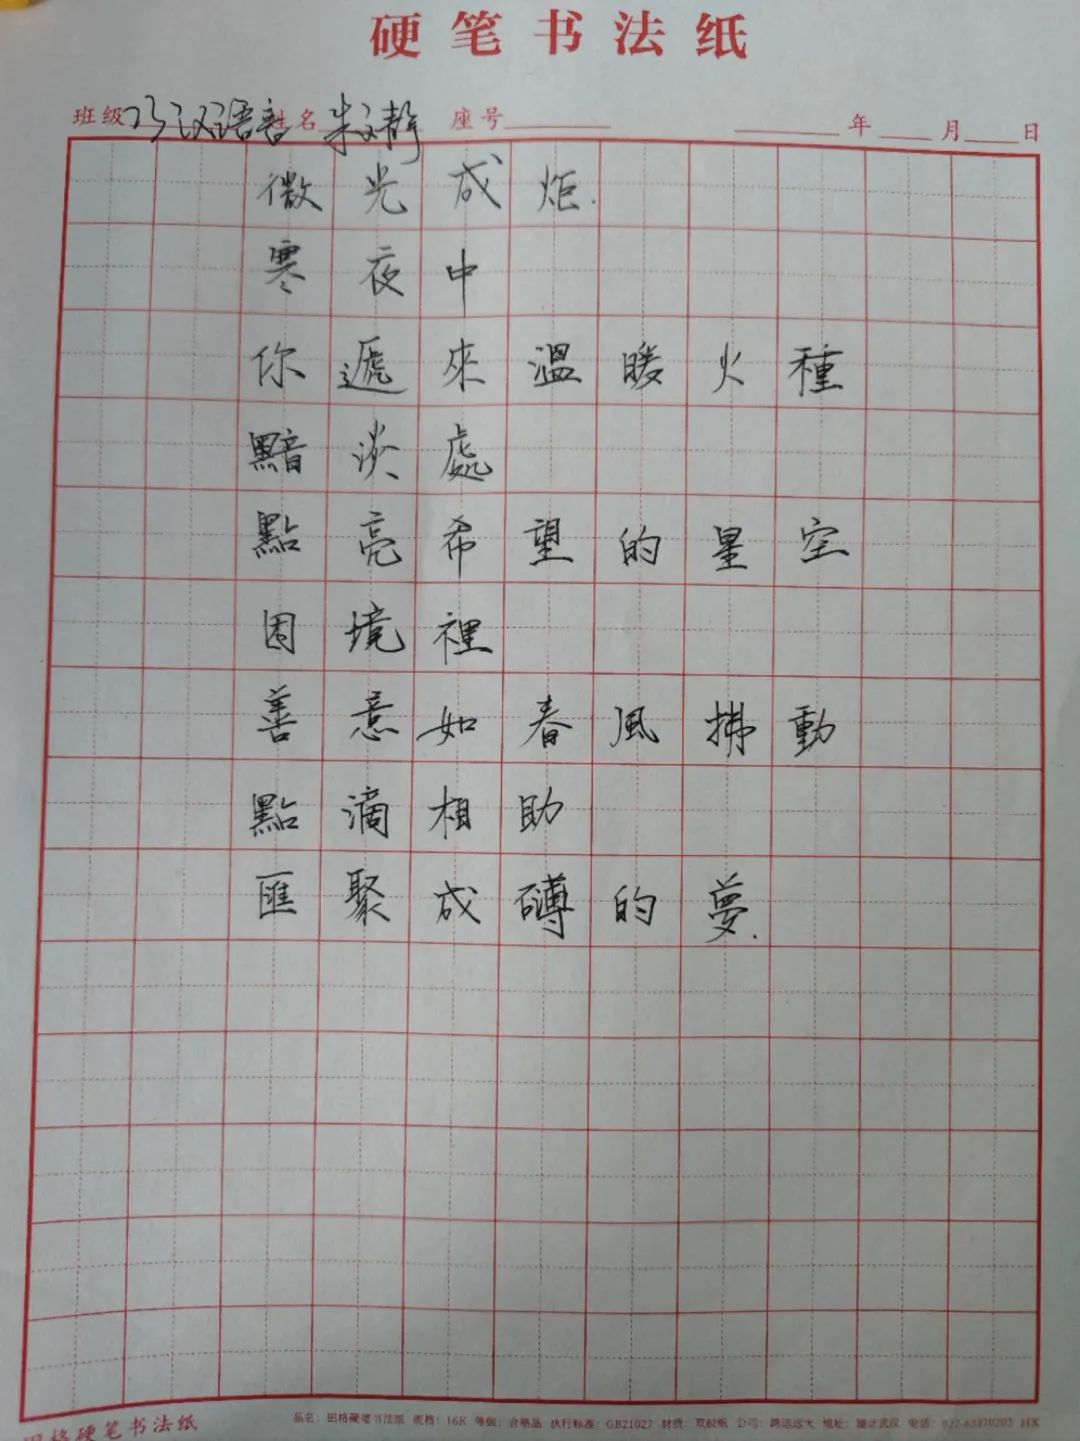 硬笔书法纸
班级 汉语言 姓名 朱文静 座号 年 月 日
微光成炬.
寒夜中
你遞來溫暖火種
黯淡處
點亮希望的星空
困境裡
善意如春風拂動
點滴相助
匯聚成磚的夢.
田格硬笔书法纸 品名：田格硬笔书法纸 规格：16K 等级：合格品 执行标准：GB21027 材质：双胶纸 公司：鸿运远大 地址：湖北武汉